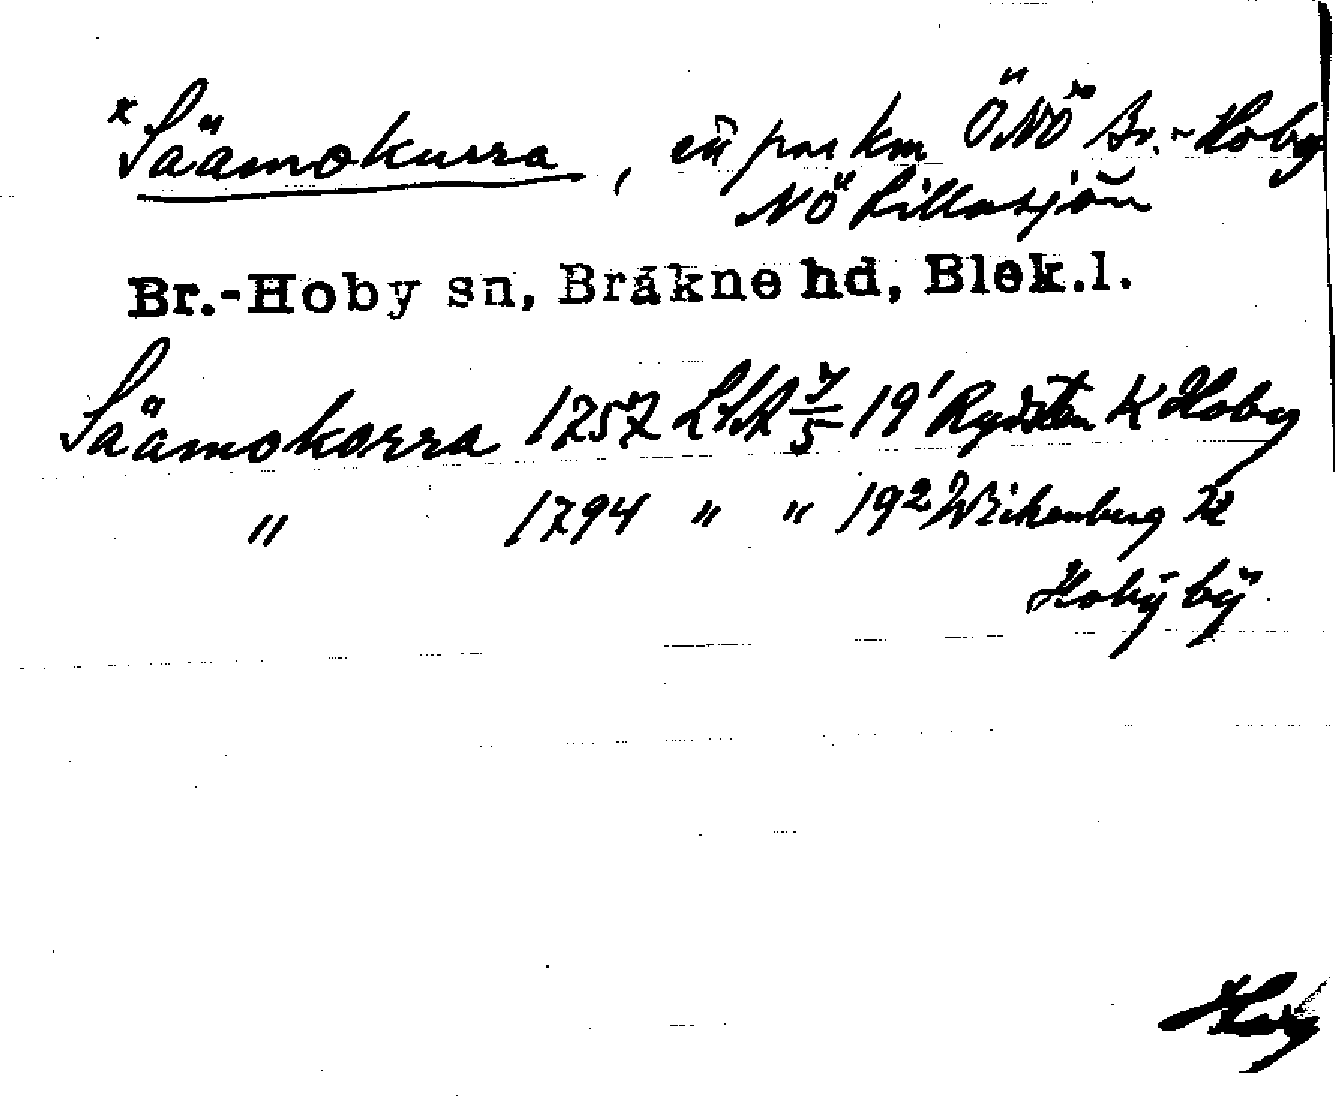 * Säämokurra, ett par km ÖNÖ Br.-Hoby
NÖ Lillasjön
Br.-Hoby sn, Bräkne hd, Blek.l.
Säämokorra 1757 LSA 7/5 19¹ K Hoby
" 1794 " " 19² Wickenberg K
Hoby by
Hoby